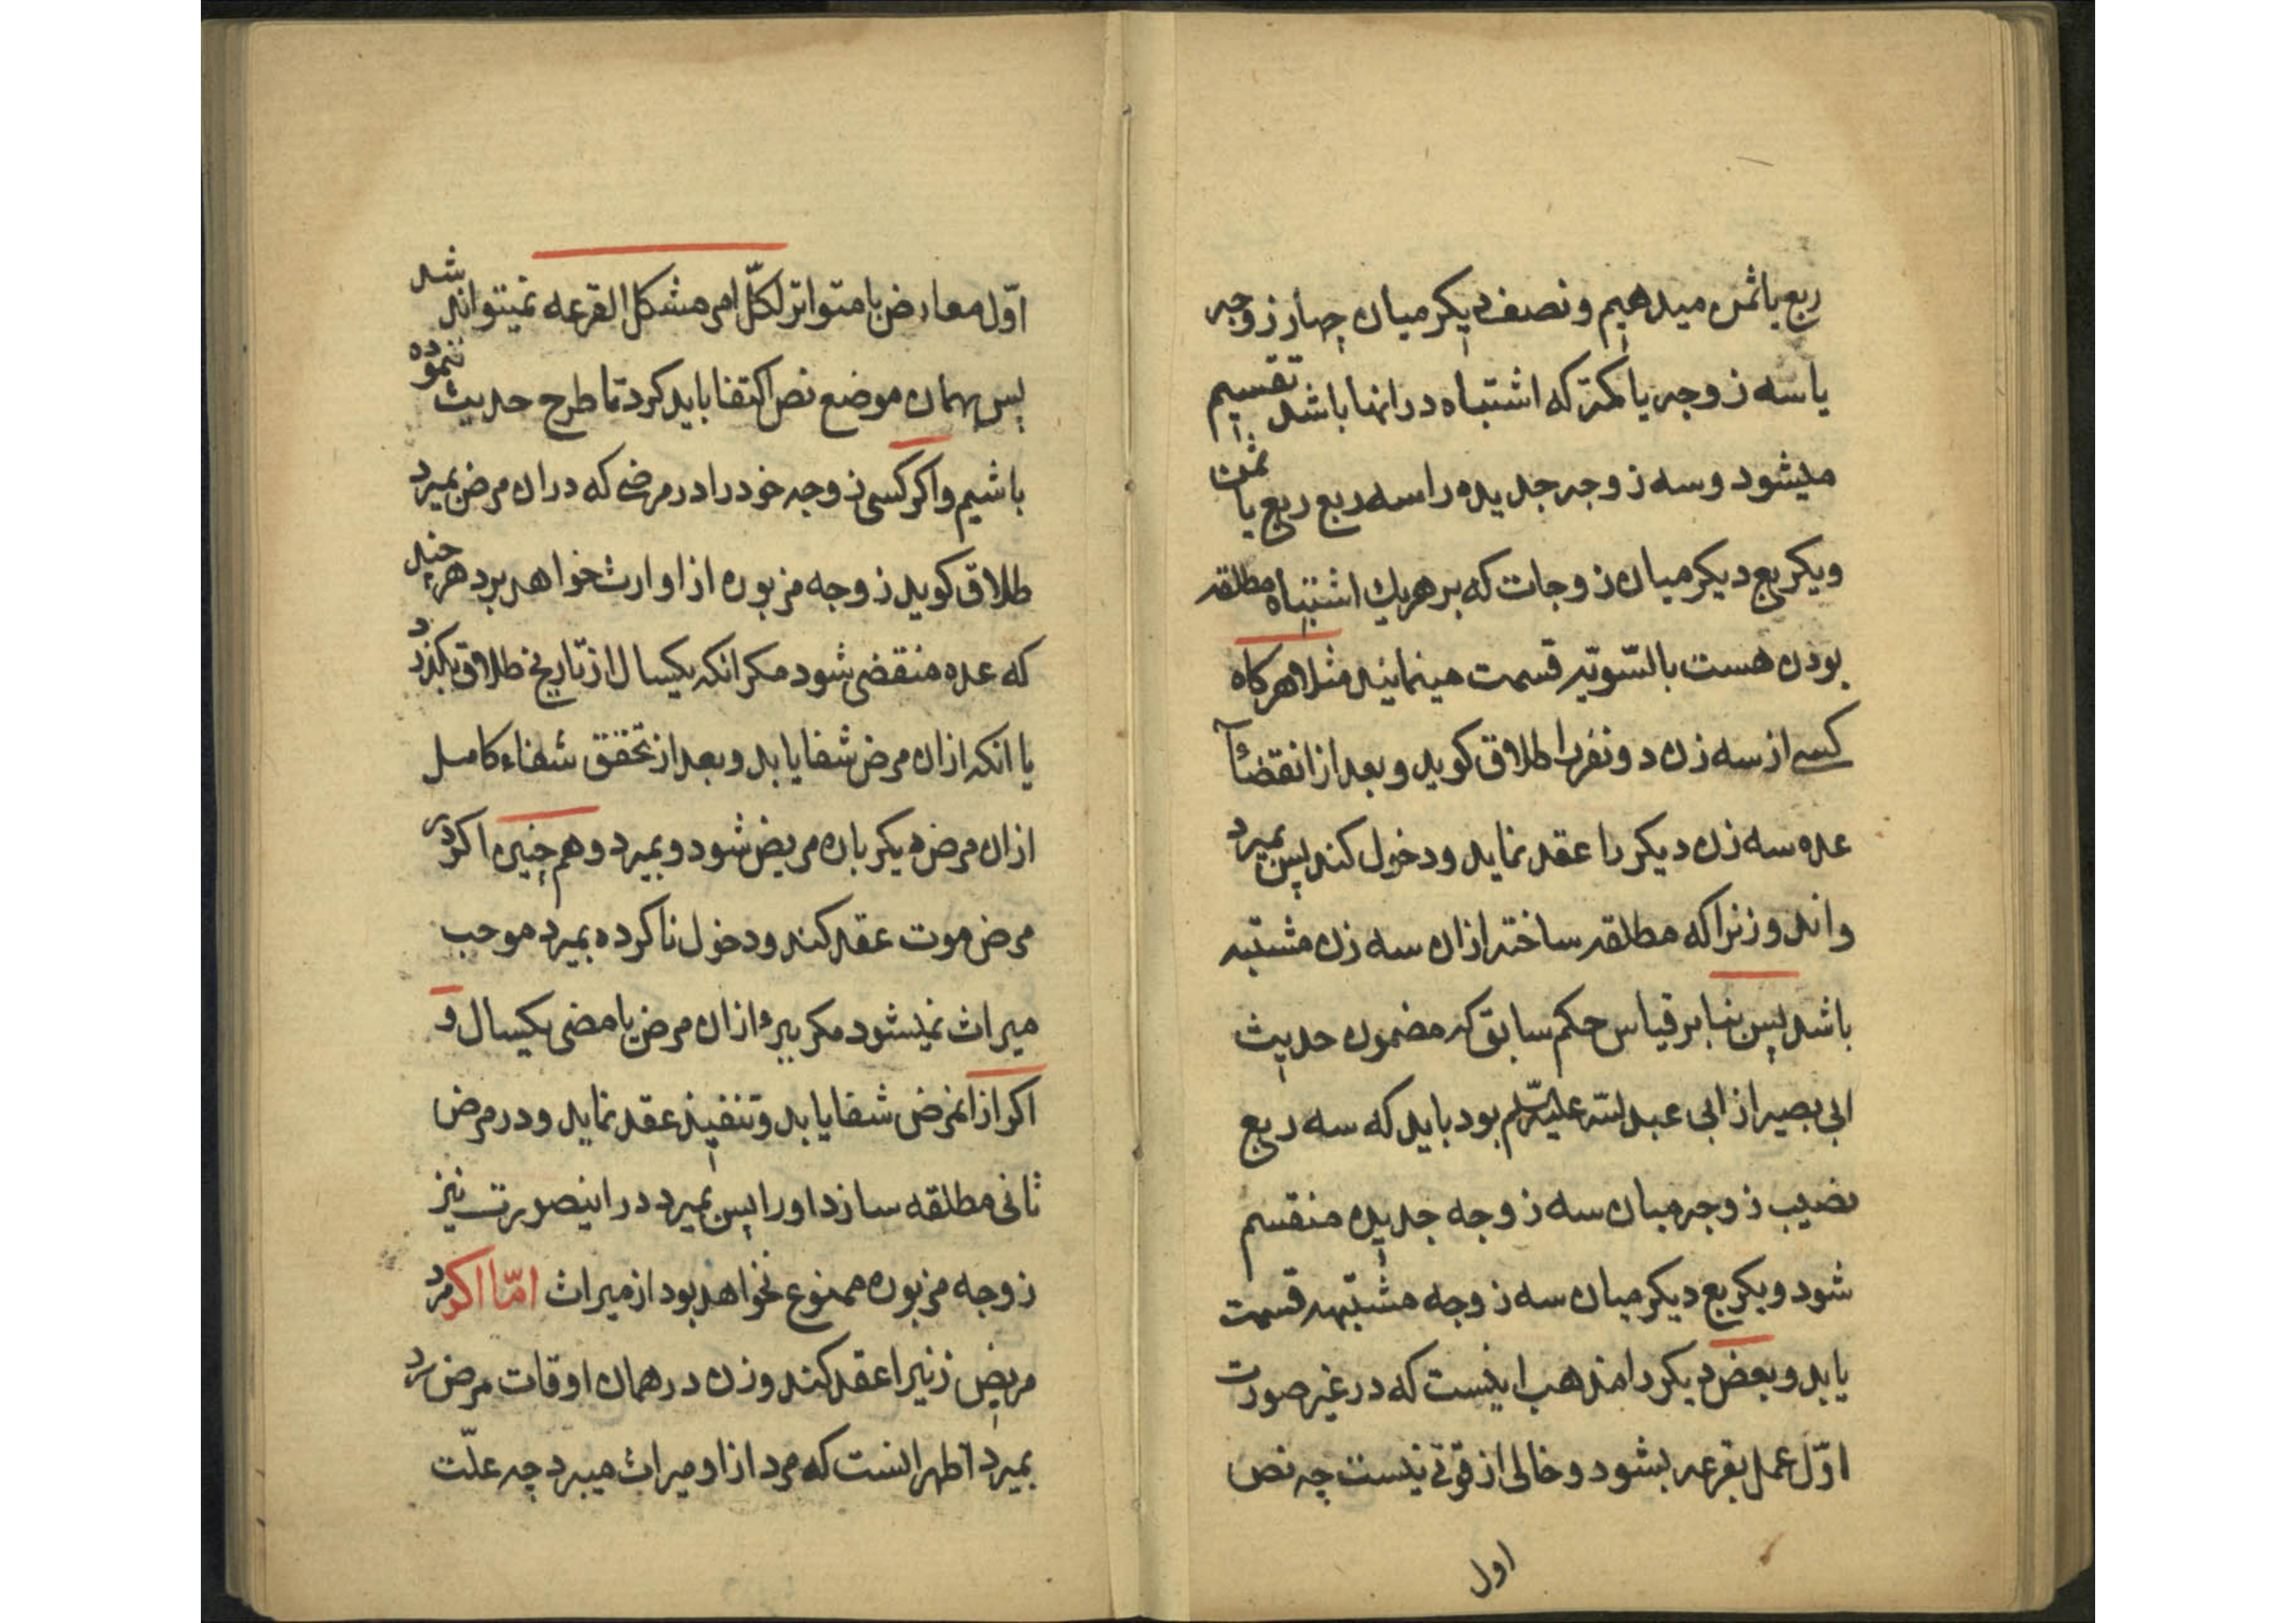 ربع یا ثمن میدهیم و نصف دیکر میان چهار زوجه
یا سه زوجه یا کمتر که اشتباه در انها باشد تقسیم
میشود و سه زوجه جدیده را سه ربع ربع یا ثمن
و یکربع دیکر میان زوجات که بر هریك اشتباه مطلقه
بودن هست بالسّویّه قسمت مینمایند مثلا هرکاه
کسی از سه زن دو نفر را طلاق کوید و بعد از انقضآء
عده سه زن دیکر را عقد نماید و دخول کند پس بمیرد
و اندو زنرا که مطلقه ساخته از ان سه زن مشتبه
باشد پس بنا بر قیاس حکم سابق که مضمون حدیث
ابی بصیر از ابی عبدالله علیه السّلم بود باید که سه ربع
نصیب زوجه میان سه زوجه جدیده منقسم
شود و یکربع دیکر میان سه زوجه مشتبهه قسمت
یابد و بعض دیکر را مذهب اینست که در غیر صورت
اوّل عمل بقرعه بشود و خالی از قوّتی نیست چه نص
اول
اوّل معارض با متواتر لکلّ امر مشکل القرعه نمیتواند شد
پس بهمان موضع نص اکتفا باید کرد تا طرح حدیث ننموده
باشیم و اکر کسی زوجه خود را در مرضی که در ان مرض بمیرد
طلاق کوید زوجه مزبوره از او ارث خواهد برد هر چند
که عده منقضی شود مکر انکه یکسال از تاریخ طلاق بکذرد
یا انکه از ان مرض شفا یابد و بعد از تحقق شفاء کامل
از ان مرض دیکر باره مریض شود و بمیرد و هم چنین اکر در
مرض موت عقد کند و دخول ناکرده بمیرد موجب
میراث نمیشود مکر ببرء از ان مرض یا مضی یکسال و
اکر از انمرض شفا یابد و تنفیذ عقد نماید و در مرض
ثانی مطلقه سازد او را پس بمیرد در اینصورت نیز
زوجه مزبوره ممنوع نخواهد بود از میراث امّا اکر مرد
مریض زنیرا عقد کند و زن در همان اوقات مرض مرد
بمیرد اظهر انست که مرد از او میراث میبرد چه علّت